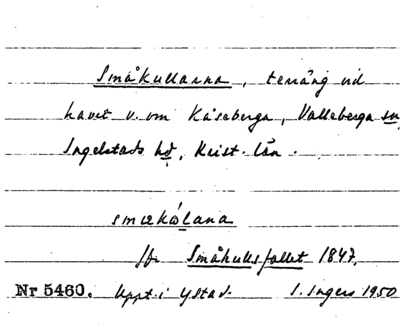 Småkullarna, terräng vid
havet v. om Kåseberga, Valleberga sn
Ingelstads hd, Krist. län.
smækólana
Jfr Småkullsfallet 1847.
Nr 5460. Uppt. i Ystad. I. Ingers 1950